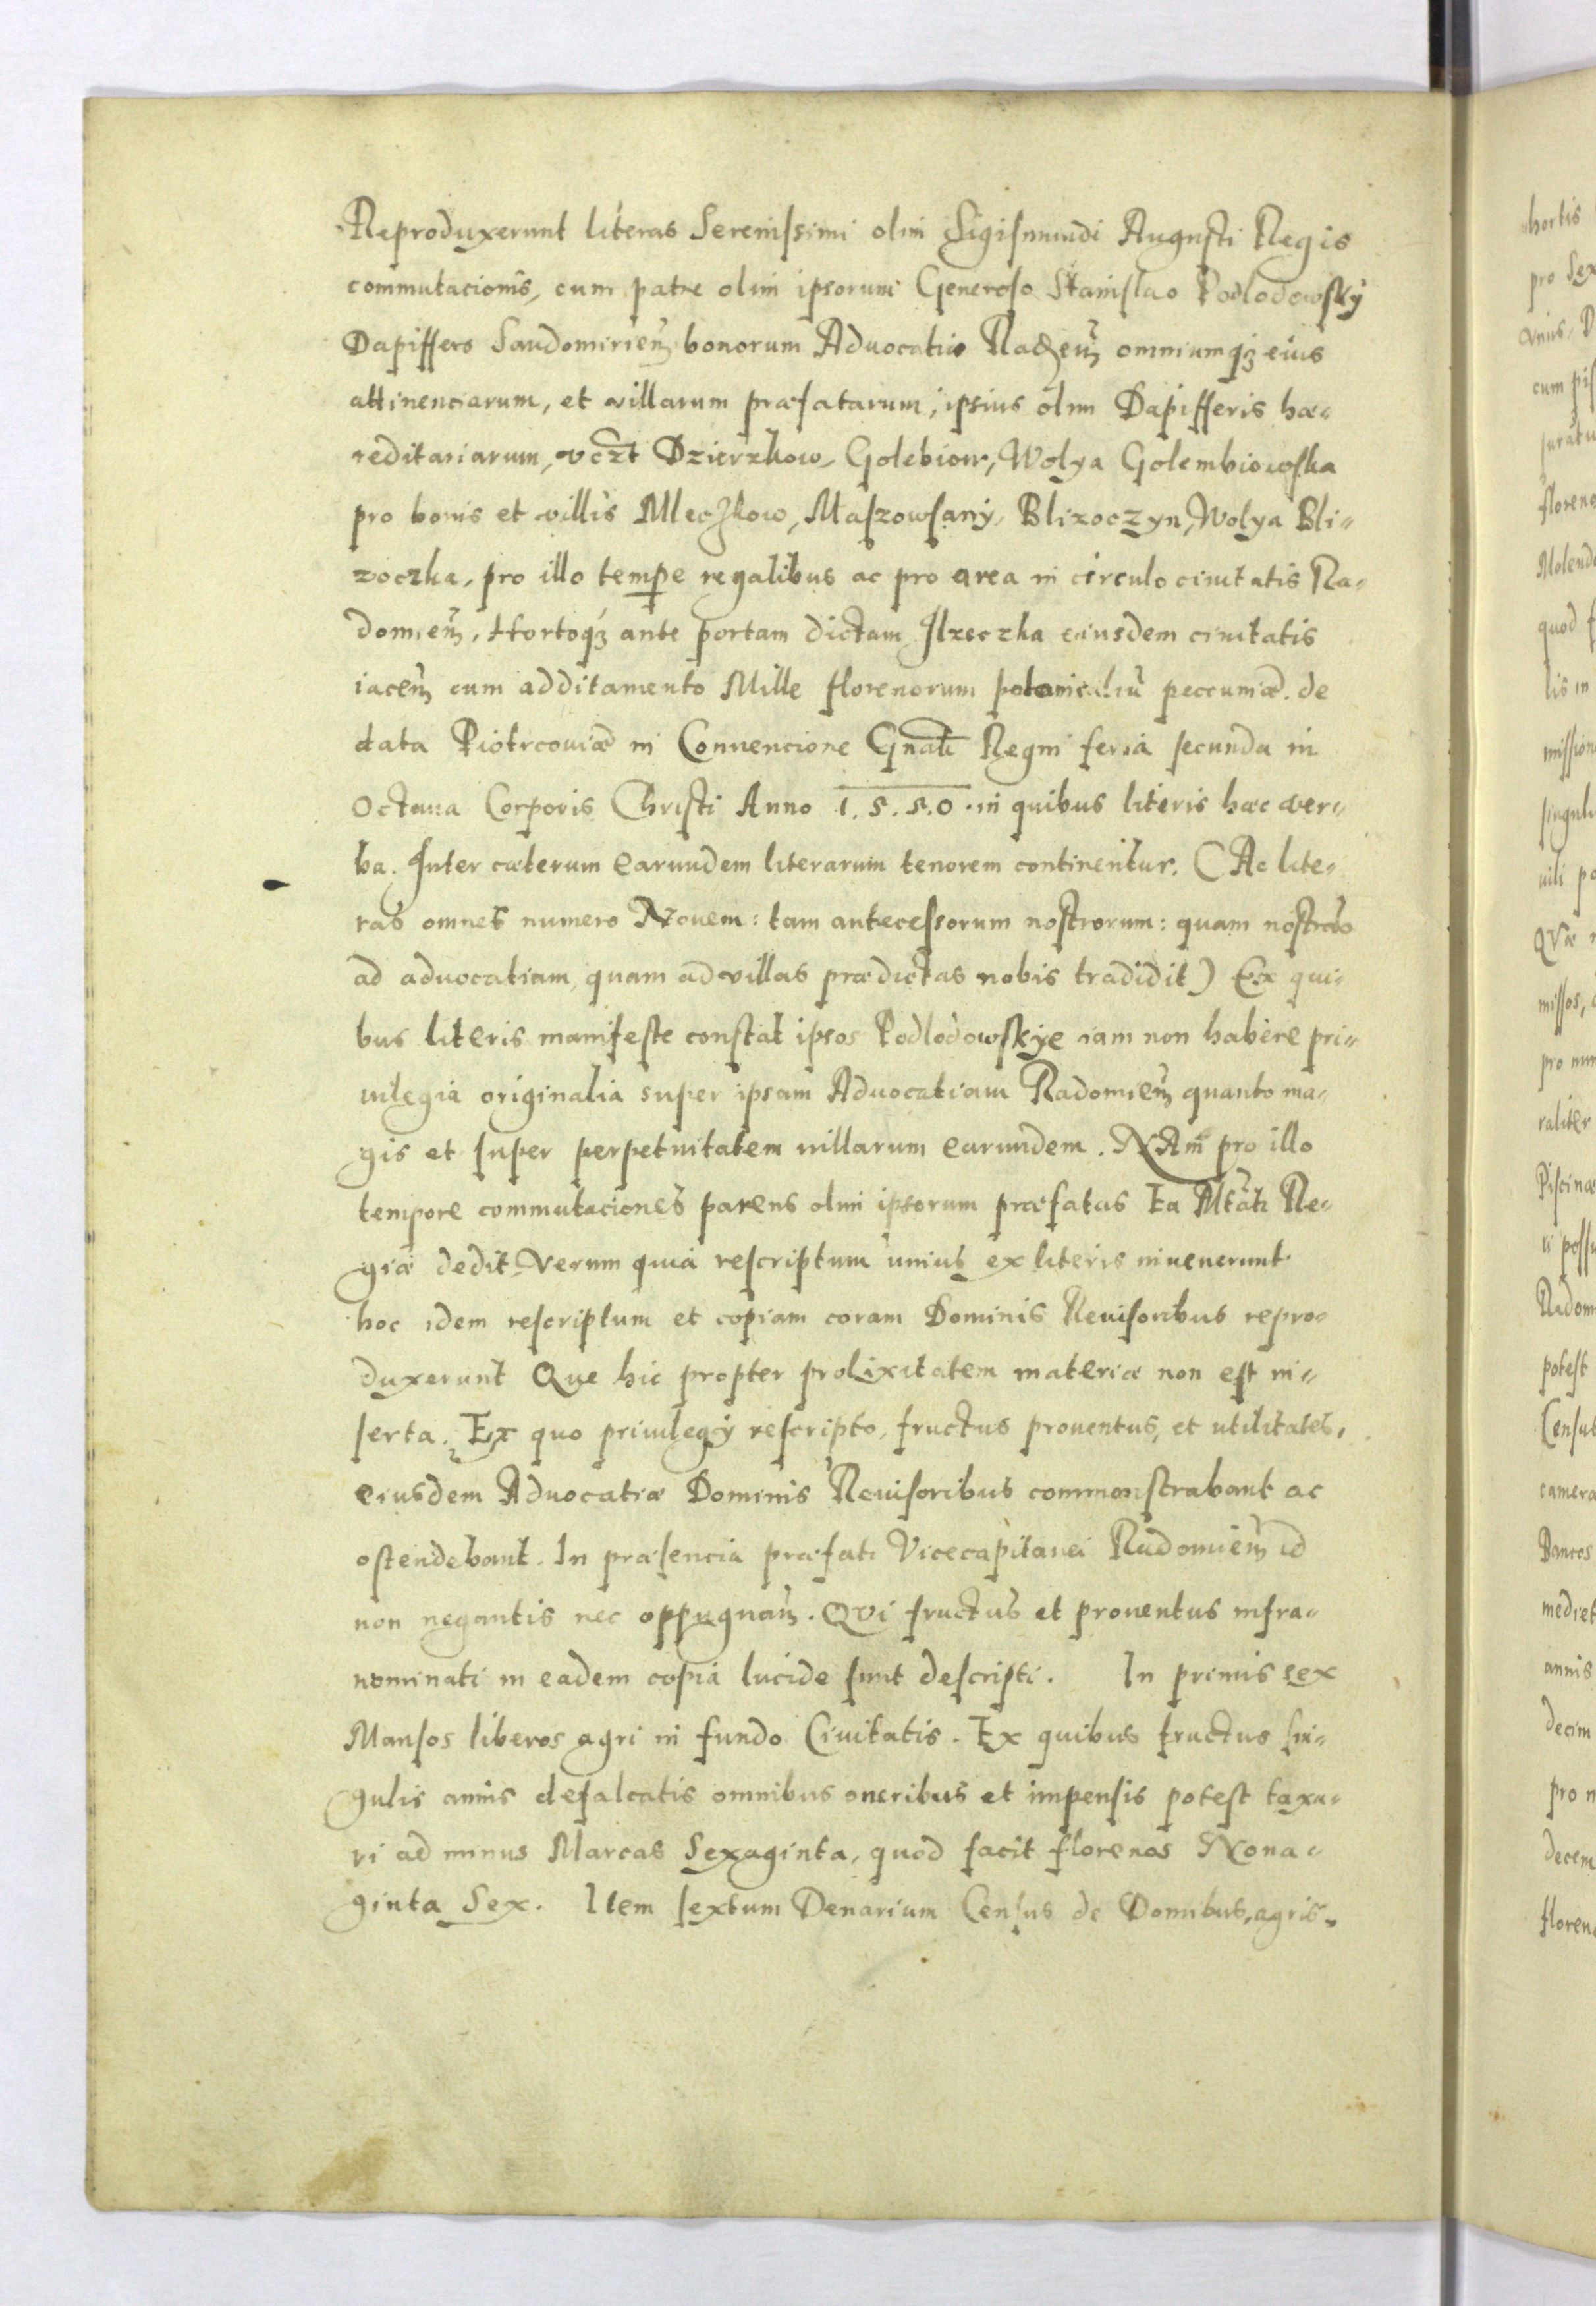 Reproduxerunt literas Serenissimi olim Sigismundi Augusti Regis
commutacionis, cum patre olim ipsorum Generoso Stanislao Podlodowsky
Dapiffero Sandomirieñ bonorum Advocatiæ Radeñ omniumqʒ eius
attinenciarum, et villarum præfatarum, ipsius olim Dapifferis hæ-
reditariarum, vczt Dzierzkow, Golebiow, Wolya Golembiowska
pro bonis et villis Mleczkow, Maszowsany, Blizoczyn, Wolya Bli-
zoczka, pro illo tempe regalibus ac pro area in circulo ciuitatis Ra-
domieñ, Hortoqʒ ante portam dictam Ilzeczka eiusdem ciuitatis
iaceñ cum additamento Mille florenorum polonicaliũ peccuniæ. de
data Piotrcouiæ in Conuencione Gnali Regni feria secunda in
Octaua Corporis Christi Anno 1.5.5.0. in quibus literis hæc ver-
ba. Inter cæterum earundem literarum tenorem continentur. (Ac lite-
ras omnes numero Novem: tam antecessorum nostrorum: quam nostras
ad advocatiam, quam ad villas prædictas nobis tradidit) Ex qui-
bus literis manifeste constat ipsos Podlodowskye iam non habere pri-
uilegia originalia super ipsam Aduocatiam Radomieñ quanto ma-
gis et super perpetuitatem uillarum earundem. NAm pro illo
tempore commutaciones parens olim ipsorum præfatus Ea Mtati Re-
giæ dedit. Verum quia rescriptum unius ex literis inuenerunt
hoc idem rescriptum et copiam coram Dominis Reuisoribus repro-
duxerunt Que hic propter prolixitatem materiæ non est in-
serta. Ex quo priuilegÿ rescripto, fructus prouentus, et utilitates,
eiusdem Aduocatiæ Dominis Reuisoribus commonstrabant ac
ostendebant. In præsencia præfati Vicecapitanei Radomieñ id
non negantis nec oppugnañ. Qvi fructus et prouentus infra-
nominati in eadem copia lucide sunt descripti. In primis sex
Mansos liberos agri in fundo Ciuitatis. Ex quibus fructus sin-
gulis annis defalcatis omnibus oneribus et impensis potest taxa-
ri ad minus Marcas Sexaginta, quod facit florenos Nona-
ginta Sex. Item sextum Denarium Census de Domibus, agris,
hortis
pro Sex
cum pis
floreno
Molend
quod f
lis in
mission
singul
uili po
QVæ
missos,
pro nu
raliter
Piscinæ
Radom
potest
Censu
camera
mediet
annis
decim
pro n
decem
floren